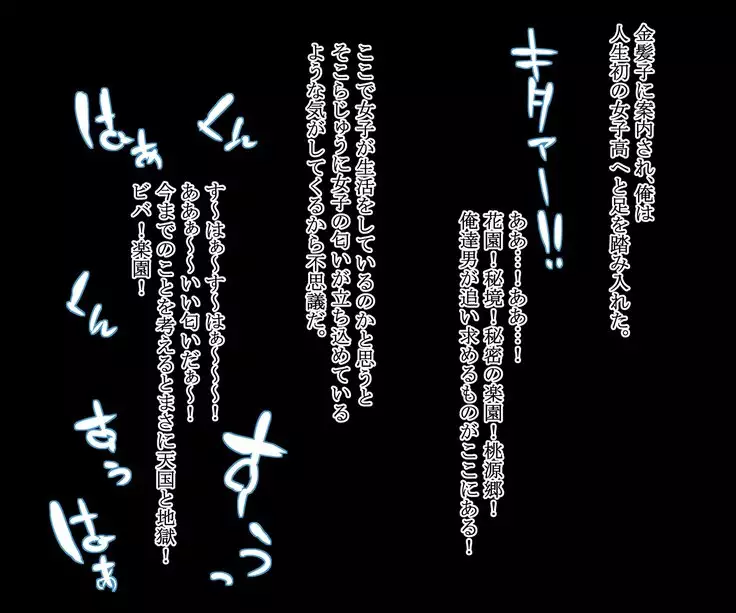 金髪子に案内され、俺は
人生初の女子高へと足を踏み入れた。
キタァー!!
ああ…！ああ…！
花園！秘境！秘密の楽園！桃源郷！
俺達男が追い求めるものがここにある！
ここで女子が生活をしているのかと思うと
そこらじゅうに女子の匂いが立ち込めている
ような気がしてくるから不思議だ。
くん
はぁ
す～はぁ～す～はぁ～～～！
ああぁ～～いい匂いだぁ～！
今までのことを考えるとまさに天国と地獄！
ビバ！楽園！
くん
すぅ
はぁ
すぅっ